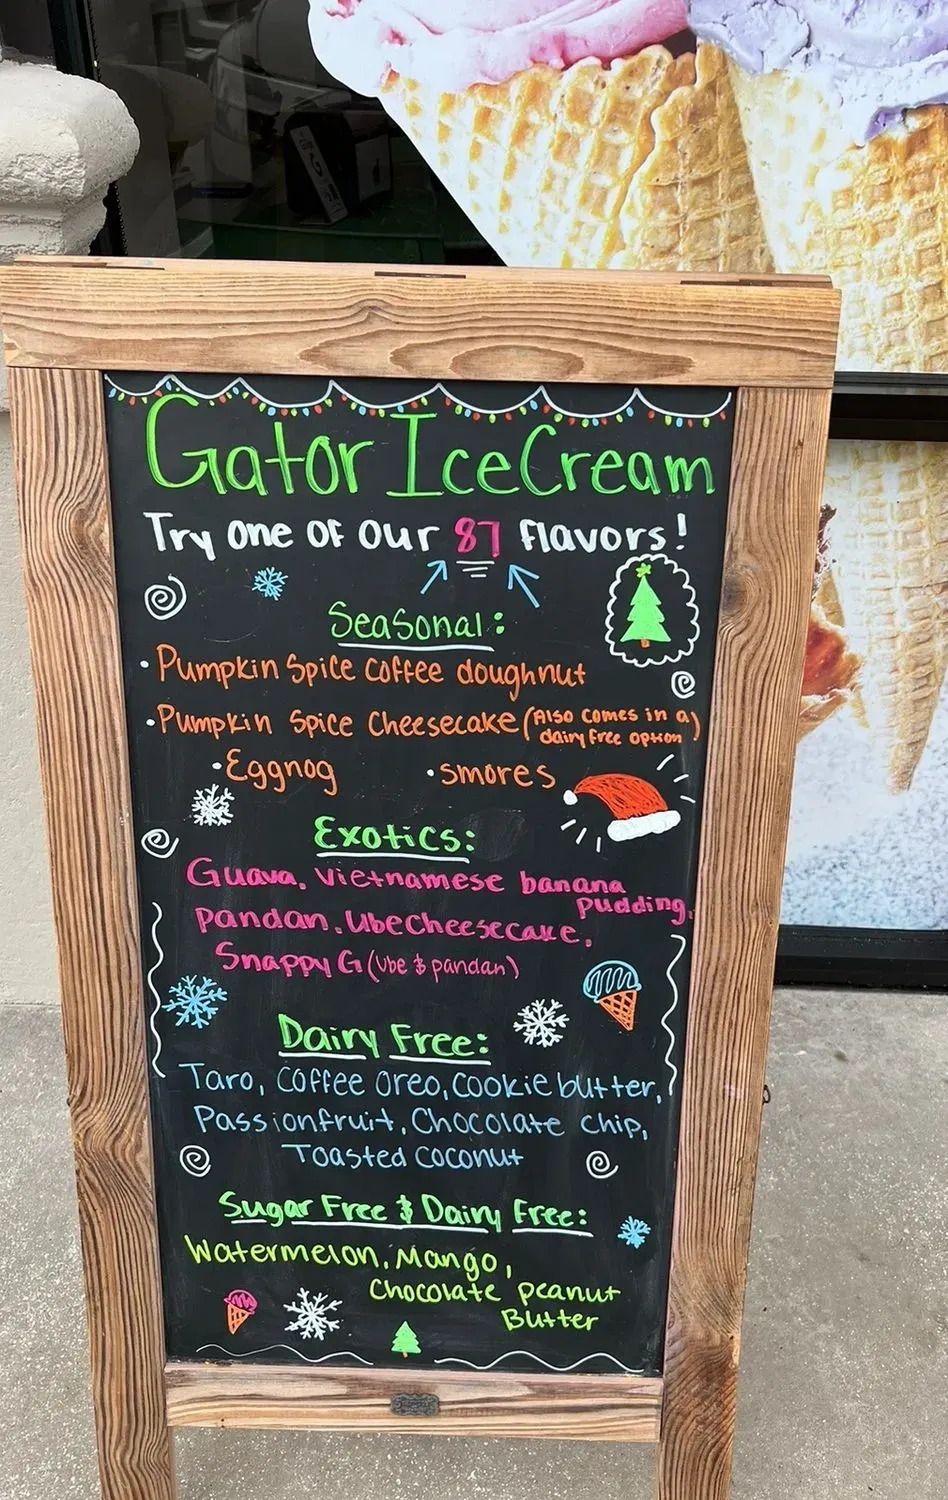 Gator IceCream
Try one of our 87 flavors!
Seasonal:
• Pumpkin Spice coffee doughnut
• Pumpkin Spice Cheesecake (Also comes in a
dairy free option)
• Eggnog • smores
Exotics:
Guava, Vietnamese banana
pudding,
pandan, Ube Cheesecake,
Snappy G (Ube & pandan)
Dairy Free:
Taro, Coffee Oreo, Cookie butter,
Passionfruit, Chocolate chip,
Toasted Coconut
Sugar Free & Dairy Free:
Watermelon, Mango,
Chocolate peanut
Butter